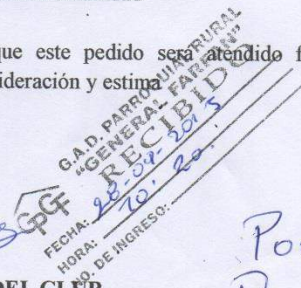 que este pedido será atendido f
ideración y estima
G.A.D. PARROQUIAL RURAL
"GENERAL FARFAN"
RECIBIDO
GPGF
FECHA: 28-04-2013
HORA: 10:20
NO. DE INGRESO:
Po
DEL CLUB